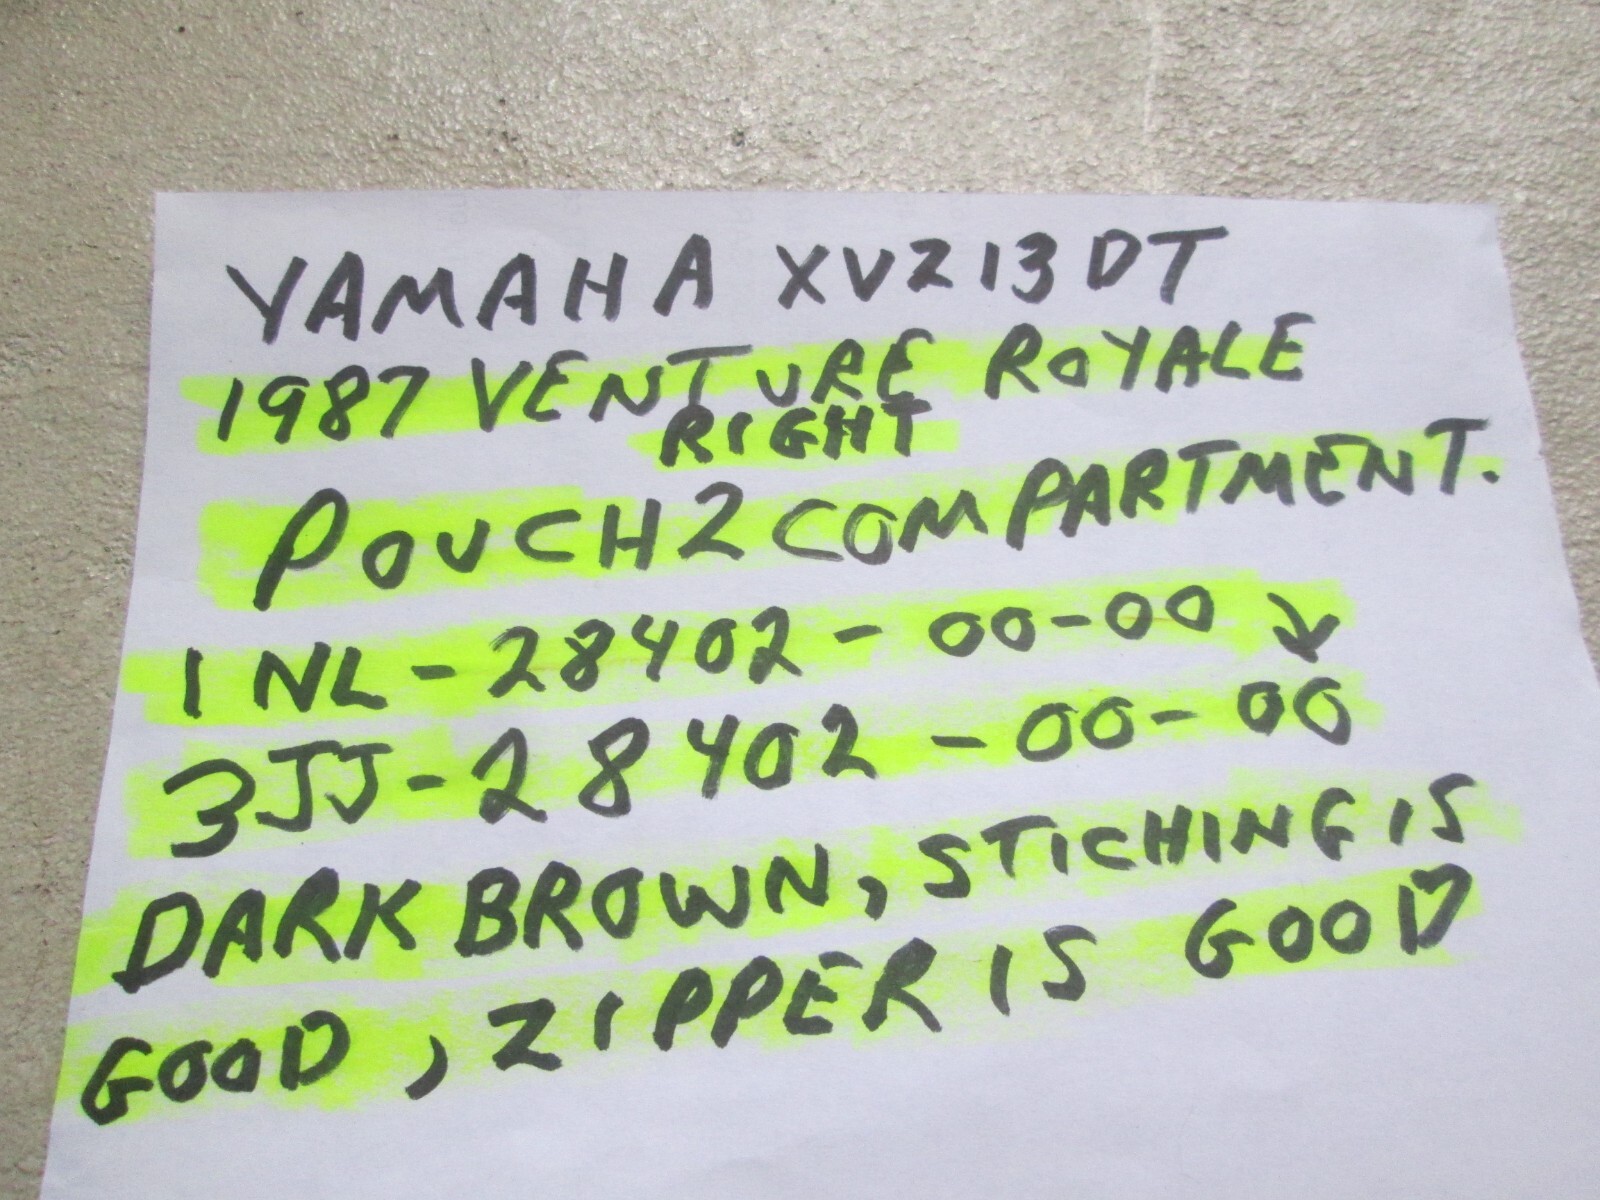 YAMAHA XVZ13DT
1987 VENTURE ROYALE
RIGHT
POUCH 2 COMPARTMENT.
1NL-28402-00-00 ↓
3JJ-28402-00-00
DARK BROWN, STICHING IS
GOOD, ZIPPER IS GOOD